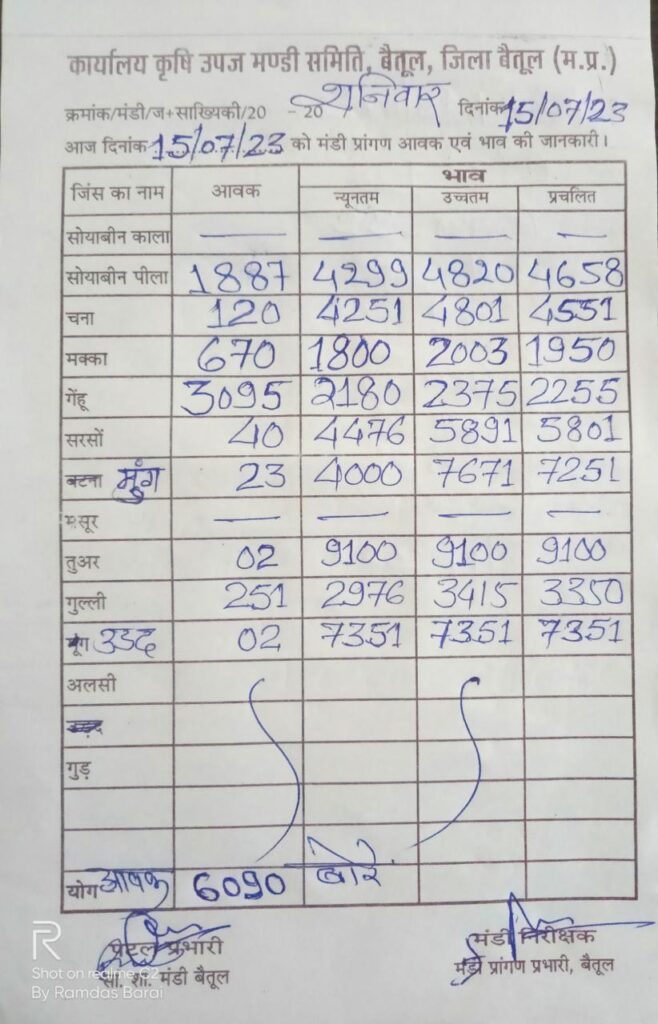 कार्यालय कृषि उपज मण्डी समिति, बैतूल, जिला बैतूल (म.प्र.)
क्रमांक/मंडी/ज+सांख्यिकी/20 - 20 शनिवार दिनांक 15/07/23
आज दिनांक 15/07/23 को मंडी प्रांगण आवक एवं भाव की जानकारी।
जिंस का नाम आवक भाव
न्यूनतम उच्चतम प्रचलित
सोयाबीन काला — — — —
सोयाबीन पीला 1887 4299 4820 4658
चना 120 4251 4801 4551
मक्का 670 1800 2003 1950
गेंहू 3095 2180 2375 2255
सरसों 40 4476 5891 5801
बटना मुंग 23 4000 7671 7251
मसूर — — — —
तुअर 02 9100 9100 9100
गुल्ली 251 2976 3415 3350
मूंग उडद 02 7351 7351 7351
अलसी
उड़द
गुड़
योग आवक 6090 बोरे
पटल प्रभारी मंडी निरीक्षक
सां. शा. मंडी बैतूल मंडी प्रांगण प्रभारी, बैतूल
R
Shot on realme C2
By Ramdas Barai